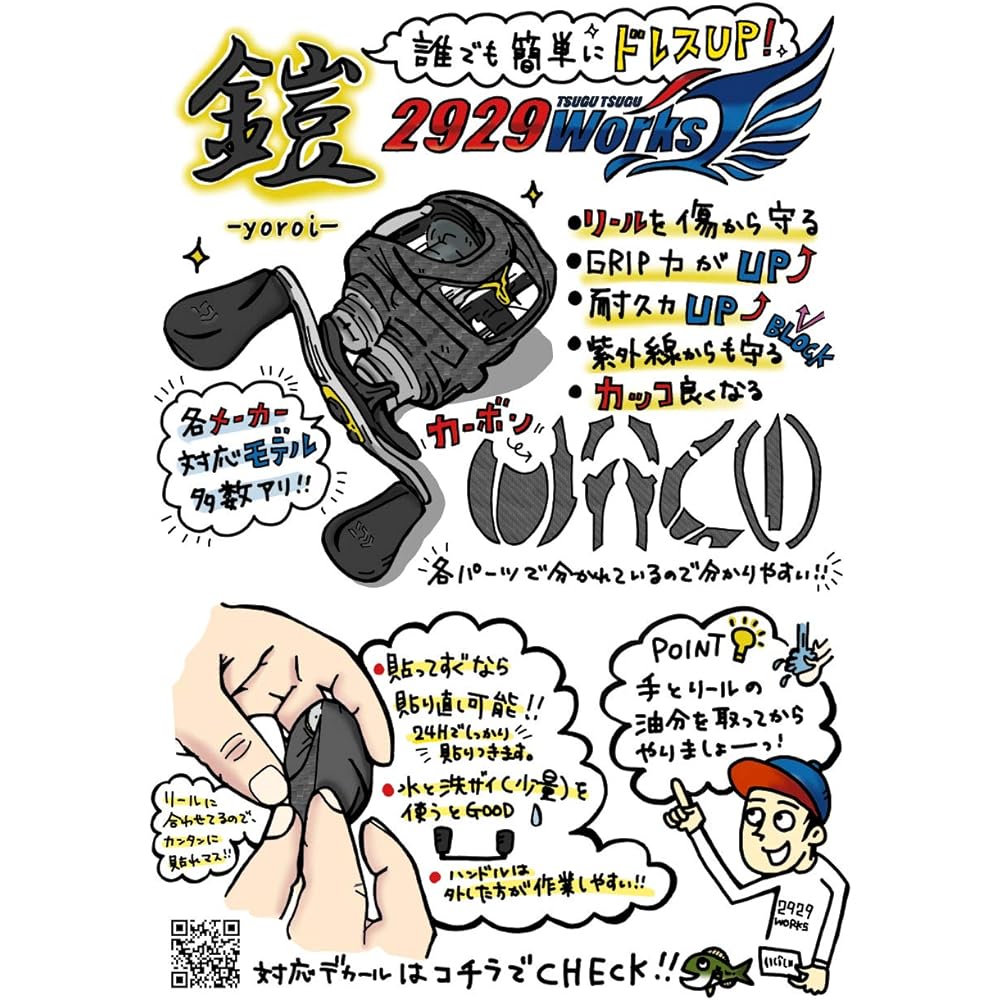 誰でも簡単にドレスUP!
鎧
-yoroi-
TSUGU TSUGU
2929Works
•リールを傷から守る
•GRIP力がUP
•耐久力UP
BLOCK
•紫外線からも守る
•カッコ良くなる
各メーカー
対応モデル
多数アリ!!
カーボン
各パーツで分かれているので分かりやすい!!
•貼ってすぐなら
貼り直し可能!!
24Hでしっかり
貼りつきます。
•水と洗ザイ(少量)を
使うとGOOD
•ハンドルは
外した方が作業しやすい!!
POINT
手とリールの
油分を取ってから
やりましょーっ!
リールに
合わせてるので、
カンタンに
貼れマス!!
2929
WORKS
対応デカールはコチラでCHECK!!